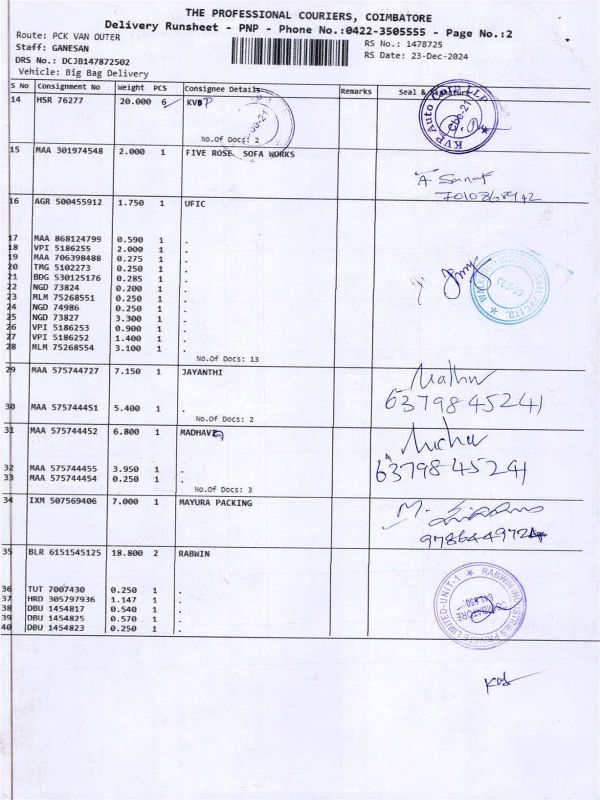 THE PROFESSIONAL COURIERS, COIMBATORE
Delivery Runsheet - PNP - Phone No.:0422-3505555 - Page No.:2
Route: PCK VAN OUTER
RS No.: 1478725
Staff: GANESAN
RS Date: 23-Dec-2024
DRS No.: DCJB147872502
Vehicle: Big Bag Delivery
S No Consignment No Weight PCS Consignee Details Remarks Seal &
14 HSR 76277 20.000 6 KVBP
No.Of Docs: 2
KVP Auto Corp LLP
Cbe-21
15 MAA 301974548 2.000 1 FIVE ROSE SOFA WORKS
16 AGR 500455912 1.750 1 UFIC
17 MAA 868124799 0.590 1 .
18 VPI 5186255 2.000 1 .
19 MAA 706398488 0.275 1 .
20 TMG 5102273 0.250 1 .
21 BDG 530125176 0.285 1 .
22 NGD 73824 0.200 1 .
23 MLM 75268551 0.250 1 .
24 NGD 74986 0.250 1 .
25 NGD 73827 3.300 1 .
26 VPI 5186253 0.900 1 .
27 VPI 5186252 1.400 1 .
28 MLM 75268554 3.100 1 .
No.Of Docs: 13
29 MAA 575744727 7.150 1 JAYANTHI
63798 45241
30 MAA 575744451 5.400 1 .
No.Of Docs: 2
31 MAA 575744452 6.800 1 MADHAV
63798 45241
32 MAA 575744455 3.950 1 .
33 MAA 575744454 0.250 1 .
No.Of Docs: 3
34 IXM 507569406 7.000 1 MAYURA PACKING
35 BLR 6151545125 18.800 2 RABWIN
36 TUT 7007430 0.250 1 .
37 HRD 305797936 1.147 1 .
38 DBU 1454817 0.540 1 .
39 DBU 1454825 0.570 1 .
40 DBU 1454823 0.250 1 .
RABWIN INDUSTRIES PRIVATE LIMITED-UNIT-1